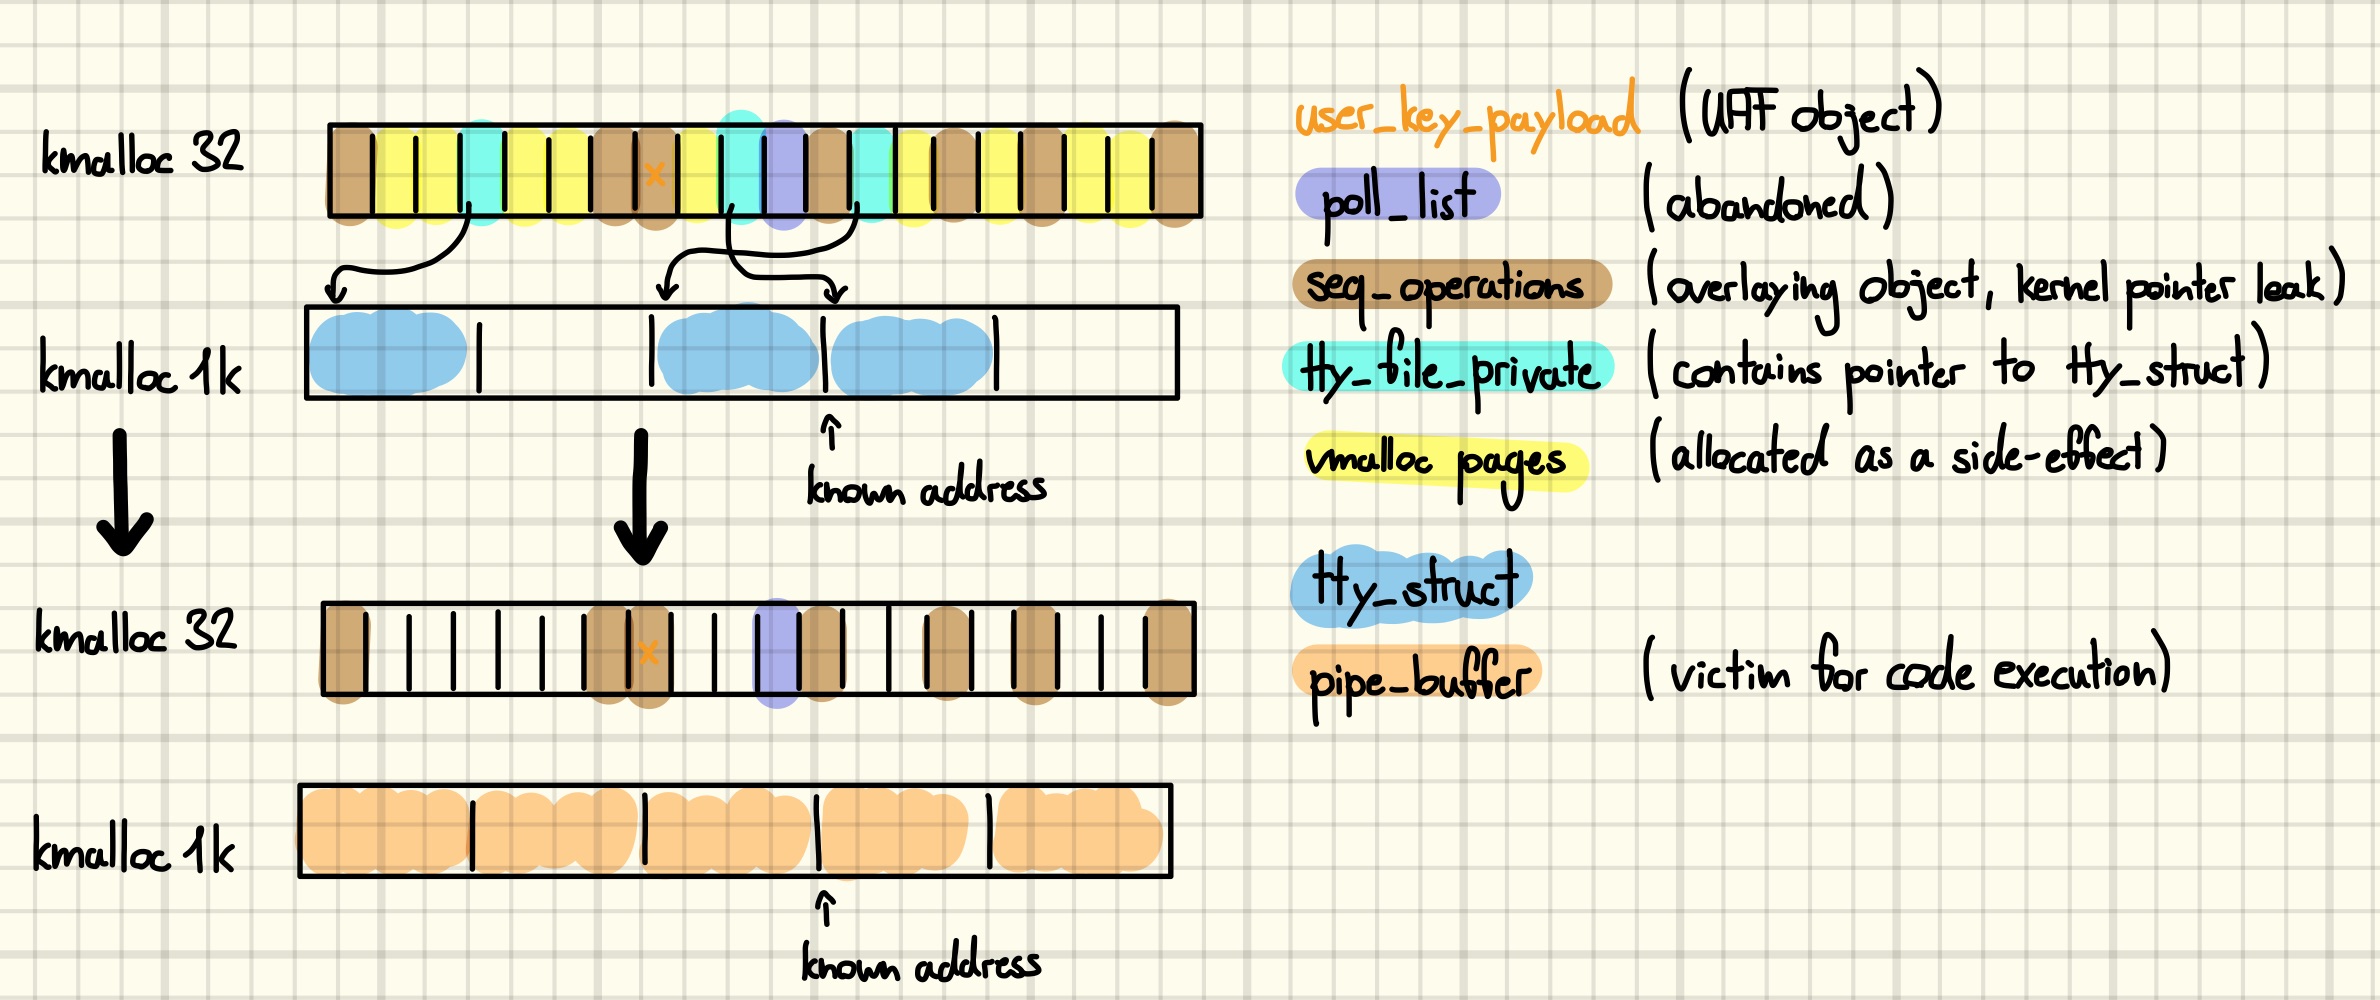 kmalloc 32
x
kmalloc 1k
known address
kmalloc 32
x
kmalloc 1k
known address
user_key_payload (UAF object)
poll_list (abandoned)
seq_operations (overlaying object, kernel pointer leak)
tty_file_private (contains pointer to tty_struct)
vmalloc pages (allocated as a side-effect)
tty_struct
pipe_buffer (victim for code execution)